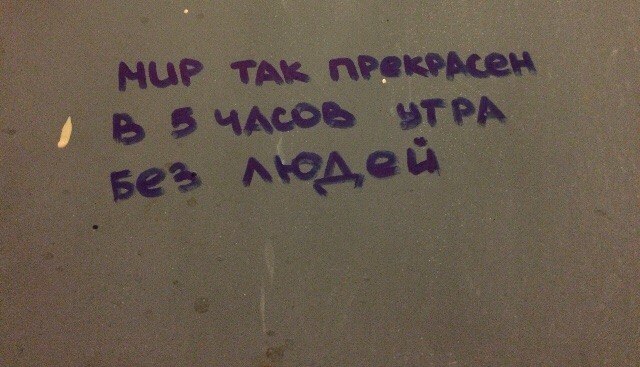 МИР ТАК ПРЕКРАСЕН
В 5 ЧАСОВ УТРА
БЕЗ ЛЮДЕЙ